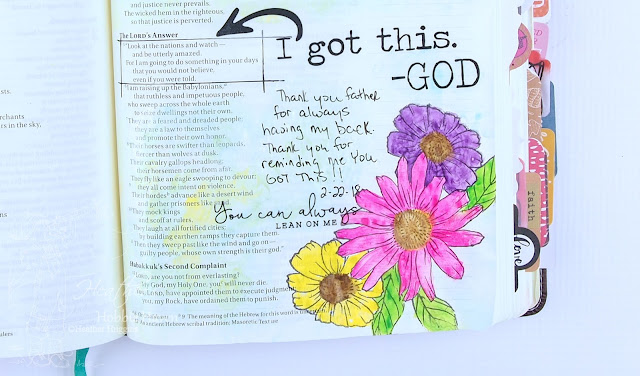 and justice never prevails.
The wicked hem in the righteous,
so that justice is perverted.
The LORD's Answer
"Look at the nations and watch—
and be utterly amazed.
For I am going to do something in your days
that you would not believe,
even if you were told.
I am raising up the Babylonians,
that ruthless and impetuous people,
who sweep across the whole earth
to seize dwellings not their own.
They are a feared and dreaded people;
they are a law to themselves
and promote their own honor.
Their horses are swifter than leopards,
fiercer than wolves at dusk.
Their cavalry gallops headlong;
their horsemen come from afar.
They fly like an eagle swooping to devour;
they all come intent on violence.
Their hordes advance like a desert wind
and gather prisoners like sand.
They mock kings
and scoff at rulers.
They laugh at all fortified cities;
by building earthen ramps they capture them.
Then they sweep past like the wind and go on—
guilty people, whose own strength is their god."
Habakkuk's Second Complaint
LORD, are you not from everlasting?
my God, my Holy One, you will never die.
You, LORD, have appointed them to execute judgment;
you, my Rock, have ordained them to punish.
9 The meaning of the Hebrew for this word is
Ancient Hebrew scribal tradition; Masoretic Text
I got this.
-GOD
Thank you father
for always
having my back.
Thank you for
reminding me You
GOT THIS!!
2-22-18
You can always
LEAN ON ME
faith
love
merchants
ers in the sky,
rulers